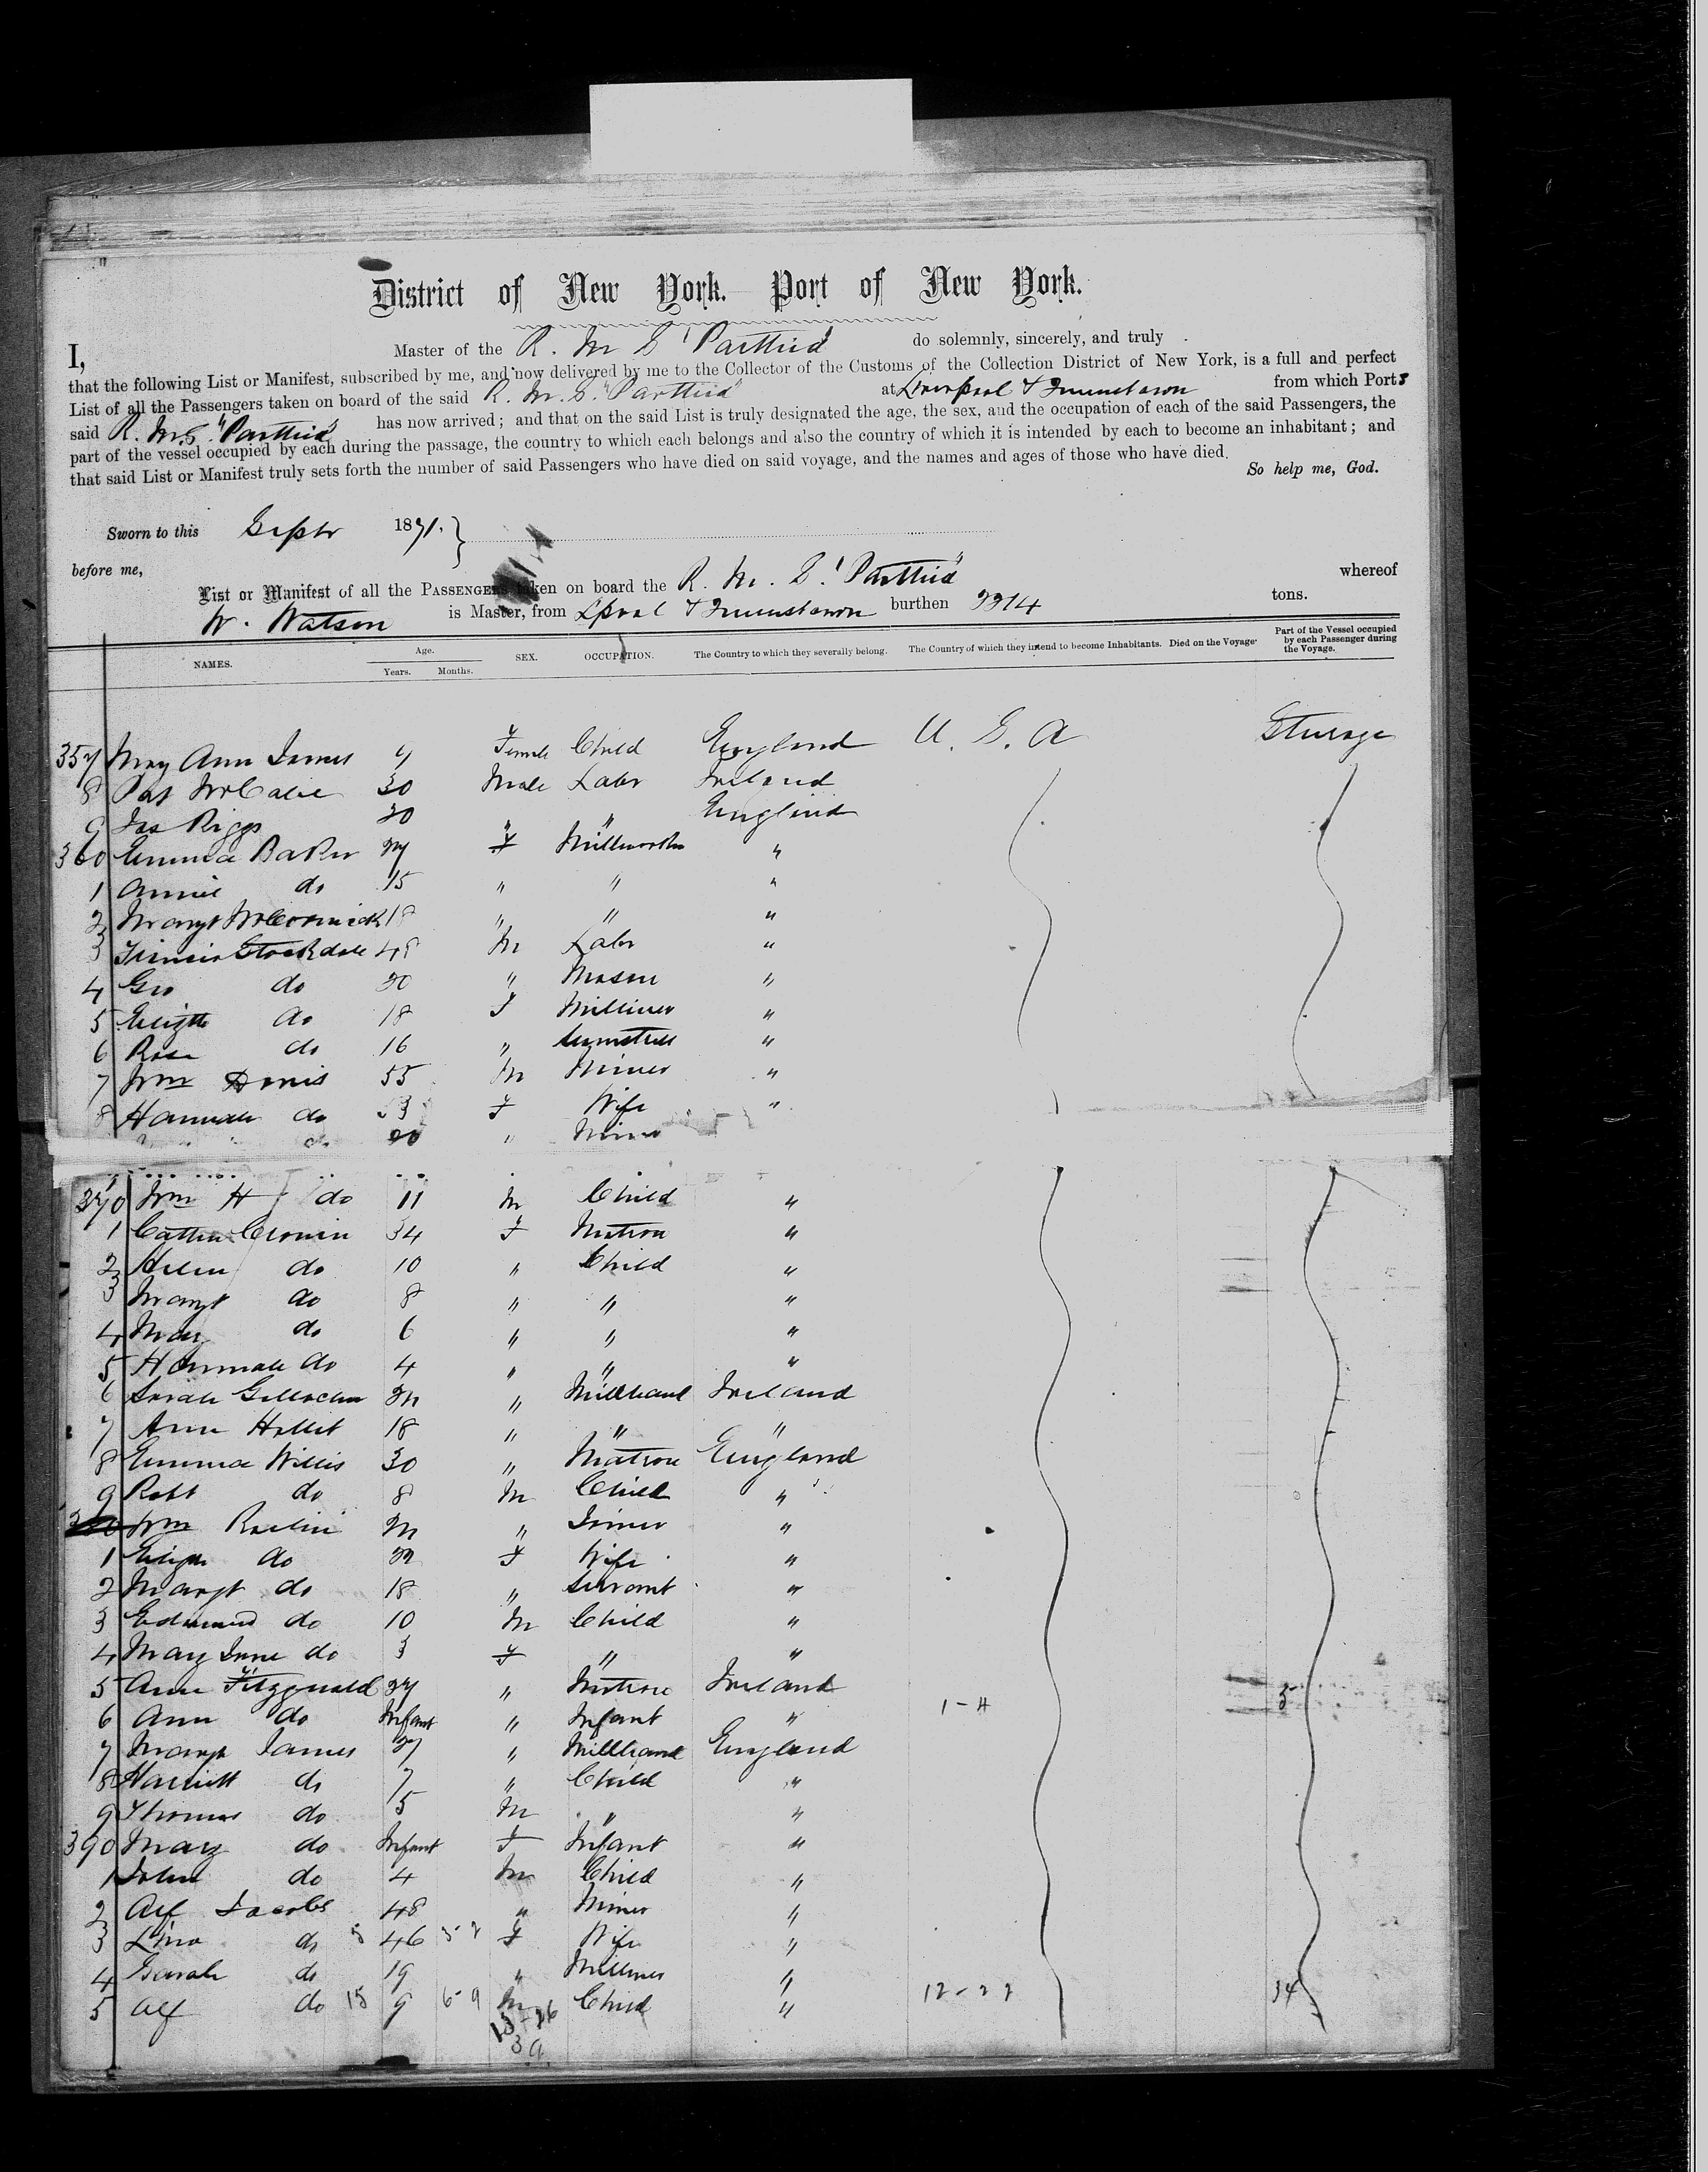 District of New York. Port of New York.
I, Master of the R. M. S "Parthia" do solemnly, sincerely, and truly
that the following List or Manifest, subscribed by me, and now delivered by me to the Collector of the Customs of the Collection District of New York, is a full and perfect
List of all the Passengers taken on board of the said R. M. S. "Parthia" at Liverpool & Queenstown from which Ports
said R. M. S "Parthia" has now arrived; and that on the said List is truly designated the age, the sex, and the occupation of each of the said Passengers, the
part of the vessel occupied by each during the passage, the country to which each belongs and also the country of which it is intended by each to become an inhabitant; and
that said List or Manifest truly sets forth the number of said Passengers who have died on said voyage, and the names and ages of those who have died.
So help me, God.
Sworn to this Septr 1871.
before me,
List or Manifest of all the PASSENGERS taken on board the R. M. S. "Parthia" whereof
W. Watson is Master, from Lpool & Queenstown burthen tons.
NAMES. Age. Years. Months. SEX. OCCUPATION. The Country to which they severally belong. The Country of which they intend to become Inhabitants. Died on the Voyage. Part of the Vessel occupied by each Passenger during the Voyage.
357 Mary Ann James 9 Female Child England U. S. A Steerage
8 Pat McCabe 30 Male Labr Ireland
9 Jas Riggs " " England
360 Emma Baker F Millworker "
1 Annie do 15 " " "
2 Margt McCormick 18 " " "
3 Francis Stockdale 48 M Labr "
4 Geo do 20 " Mason "
5 Elizth do 18 F Milliner "
6 Rose do 16 " "
7 Wm 55 M Miner "
8 Hannah do F Wife "
do 20 " Miner
370 Wm H do 11 M Child "
1 Cathn Cronin 34 F Matron "
2 Helen do 10 " Child "
3 Margt do 8 " " "
4 Mary do 6 " " "
5 Hannah do 4 " " "
6 Sarah " Millhand Ireland
7 Ann 18 " " "
8 Emma Willis 30 " Matron England
9 Robt do 8 M Child "
380 Wm " Joiner "
1 Elizth do F Wife "
2 Margt do 18 " Servant "
3 Edmund do 10 M Child "
4 Mary Jane do 3 F " "
5 Ann Fitzgerald 27 " Matron Ireland
6 Ann do Infant " Infant " 1-4 5
7 Margt James 27 " Millhand England
8 Harriett do 7 " Child "
9 Thomas do 5 M " "
390 Mary do Infant F Infant "
1 John do 4 M Child "
2 Alf Jacobs 48 " Miner "
3 do 46 F Wife "
4 Sarah do 19 " Milliner "
5 Alf do 15 9 6-9 M Child " 34